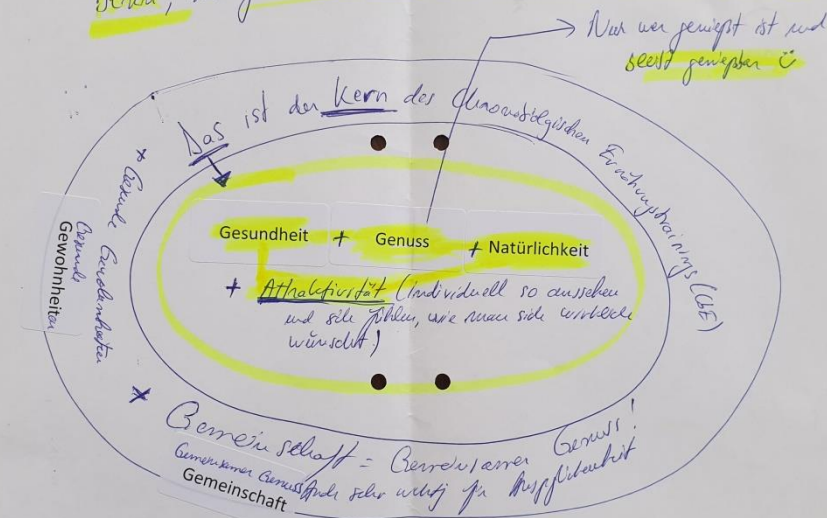 Nur wer genießt ist und
selbst genießbar ☺
Das ist der Kern des Chronobiologischen Ernährungstrainings (CbE)
Gesundheit + Genuss + Natürlichkeit
+ Attraktivität (individuell so aussehen
und sich fühlen, wie man sich wirklich
wünscht)
* Gesunde Gewohnheiten
Gesunde
Gewohnheiten
* Gemeinschaft = Gemeinsamer Genuss!
Gemeinsamer Genuss Auch sehr wichtig für
Gemeinschaft